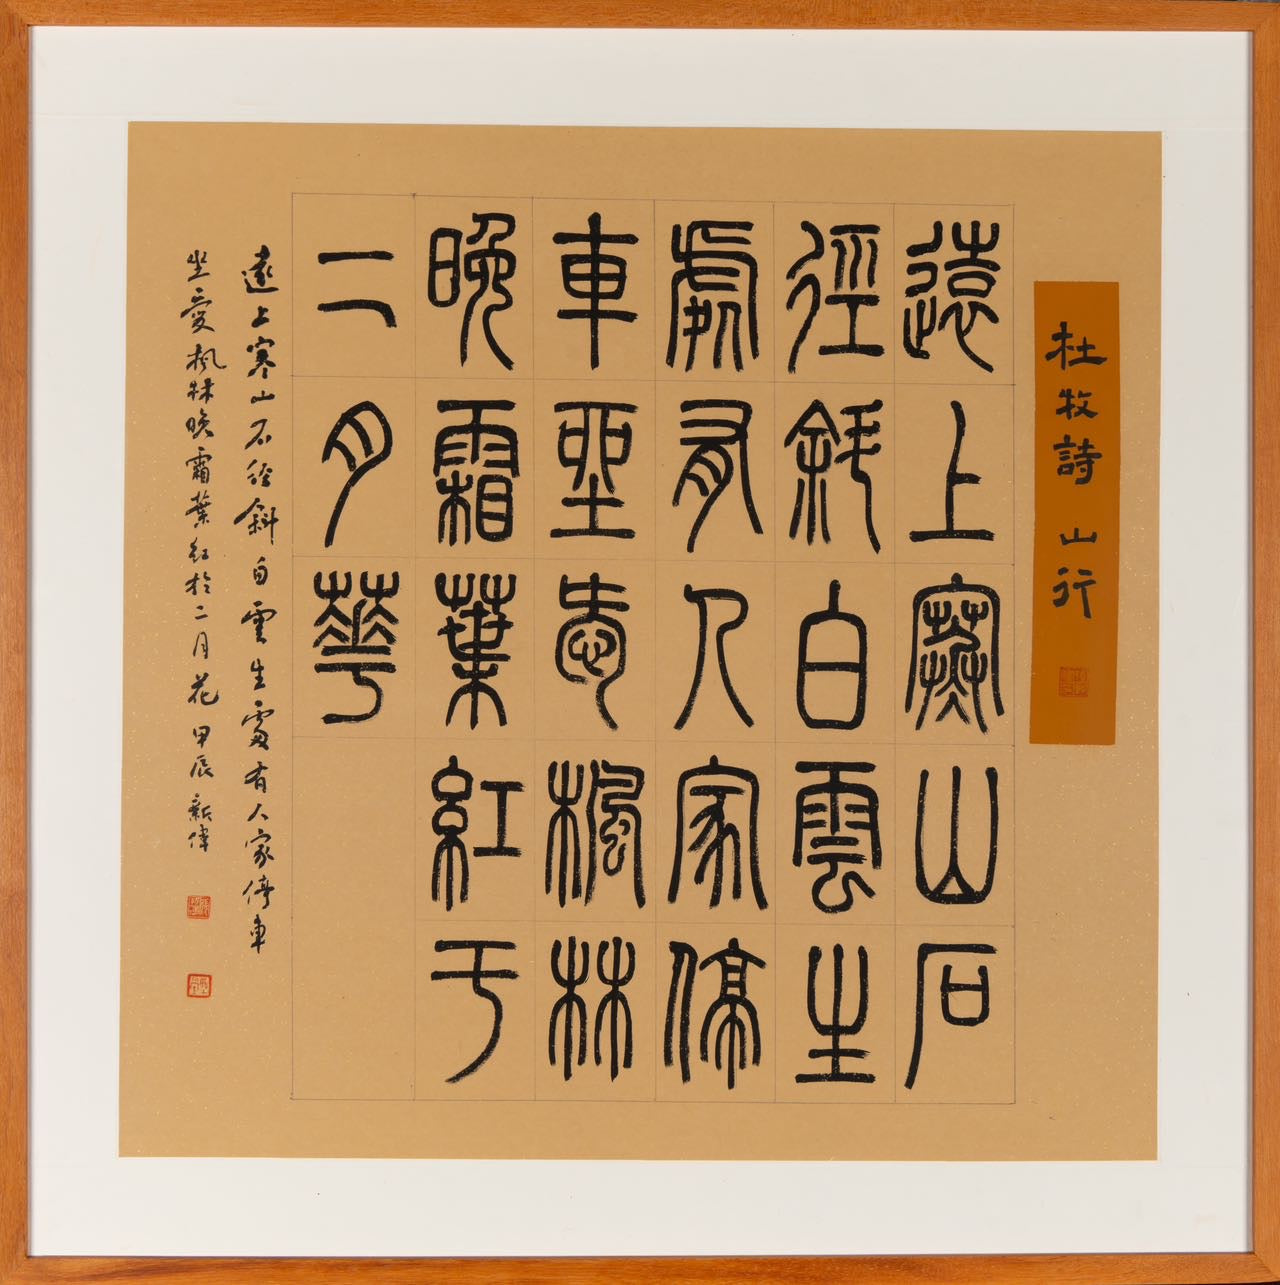 杜牧詩 山行
遠上寒山石
徑斜白雲生
處有人家停
車坐愛楓林
晚霜葉紅于
二月華
遠上寒山石徑斜白雲生處有人家停車
坐愛楓林晚霜葉紅於二月花 甲辰 新偉